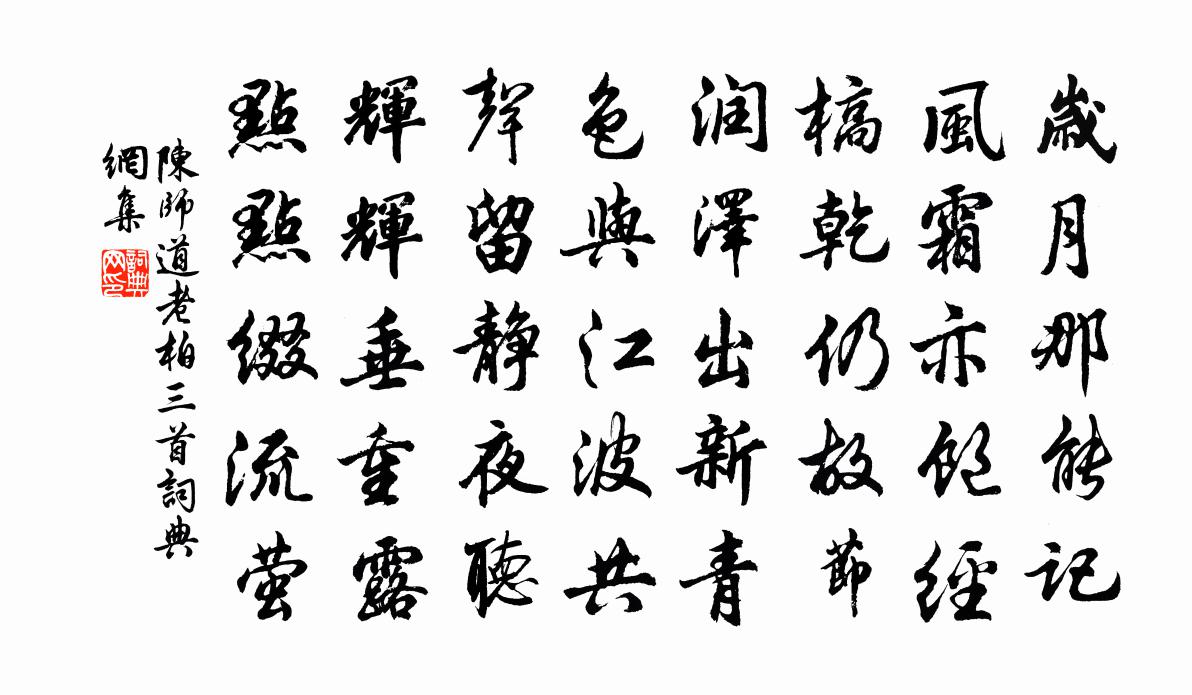 歲月那能記
風霜亦飽經
槁乾仍故節
润澤出新青
色與江波共
聲留静夜聽
輝輝垂重露
點點綴流萤
陳師道老柏三首詞典
網集
詞典
网印